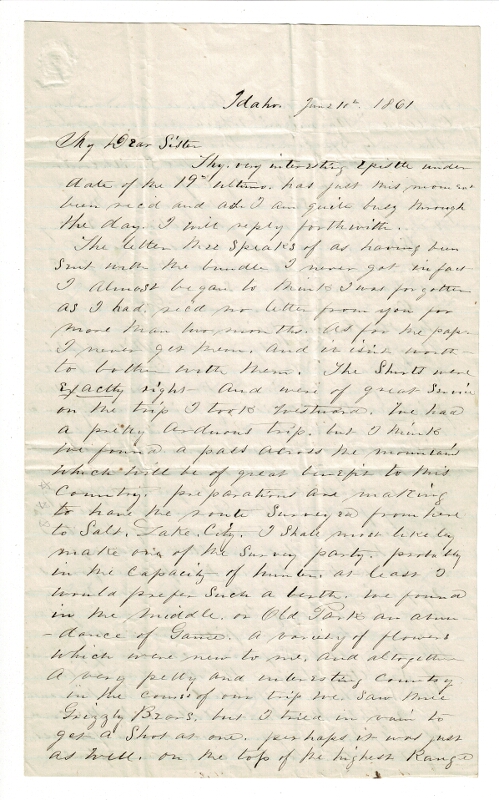 Idaho. June 10th 1861
My Dear Sister
Thy very interesting Epistle under
date of the 19th ultimo. has just this moment
been recd and as I am quite busy through
the day. I will reply forthwith.
The letter thee speaks of as having been
sent with the bundle I never got in fact
I almost began to think I was forgotten
as I had rec'd no letter from you for
more than two months. As for the paper
I never get them, and it isnt worth
to bother with them. The Shirts were
Exactly right and were of great Service
on the trip I took Westward. We had
a pretty arduous trip. but I think
we found a pass across the mountains
which will be of great benefit to this
Country. preparations are making
to have the route Surveyed from here
to Salt. Lake. City. I Shall most likely
make one of the Survey party. probably
in the Capacity of hunter. at least I
would prefer Such a berth. We found
in the Middle. or Old Park an abun
-dance of Game. a variety of flowers
which were new to me, and altogether
a very pretty and interesting Country
in the course of our trip we Saw three
Grizzly Bears. but I tried in vain to
get a Shot at one. perhaps it was just
as well. on the top of the highest Range